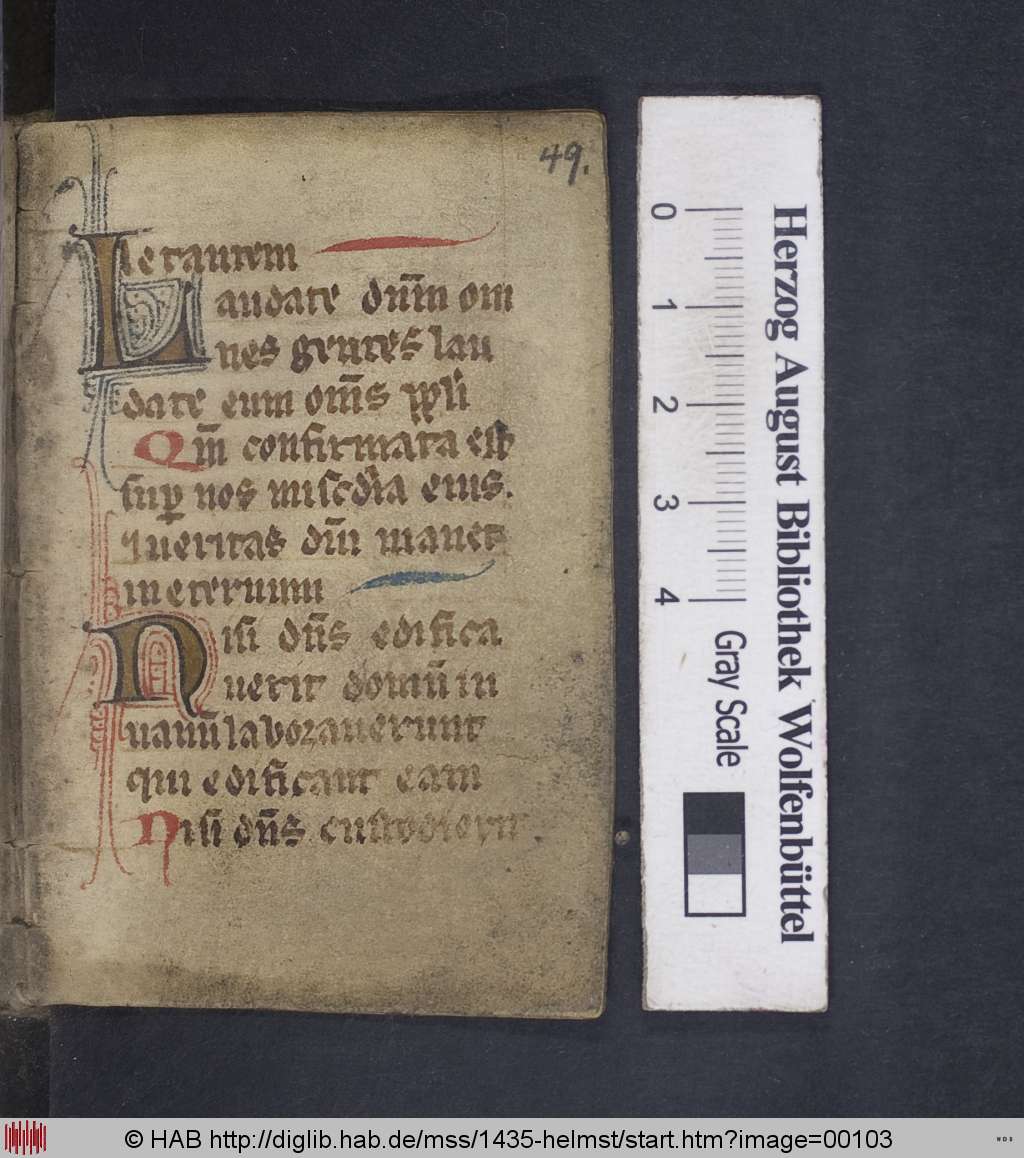 49.
le tantem
Laudate dūm om
nes gentes lau
date eum oms ppli
Qm̄ confirmata est
sup nos misc̄dia eius.
ueritas dn̄i manet
in eternum
Nisi dn̄s edifica
uerit domū in
uanū laborauerunt
qui edificant eam
Nisi dn̄s custodierit
0 1 2 3 4 Gray Scale
Herzog August Bibliothek Wolfenbüttel
© HAB http://diglib.hab.de/mss/1435-helmst/start.htm?image=00103